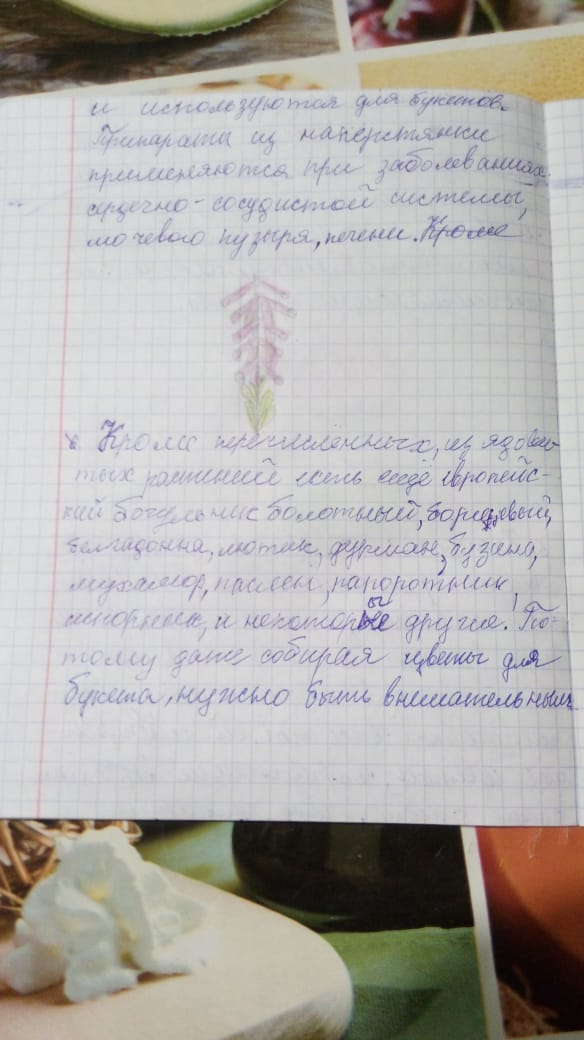 и используются для букетов.
Препараты из наперстянки
применяются при заболеваниях
сердечно-сосудистой системы,
мочевого пузыря, печени. Кроме
Кроме перечисленных, из ядови-
тых растений есть ещё европейс-
кий богульник болотный, борщевый,
белладонна, лютик, дурман, бузина,
мухамор, паслён, папоротник,
и некоторые другие! По-
тому даже собирая цветы для
букета, нужно быть внимательным